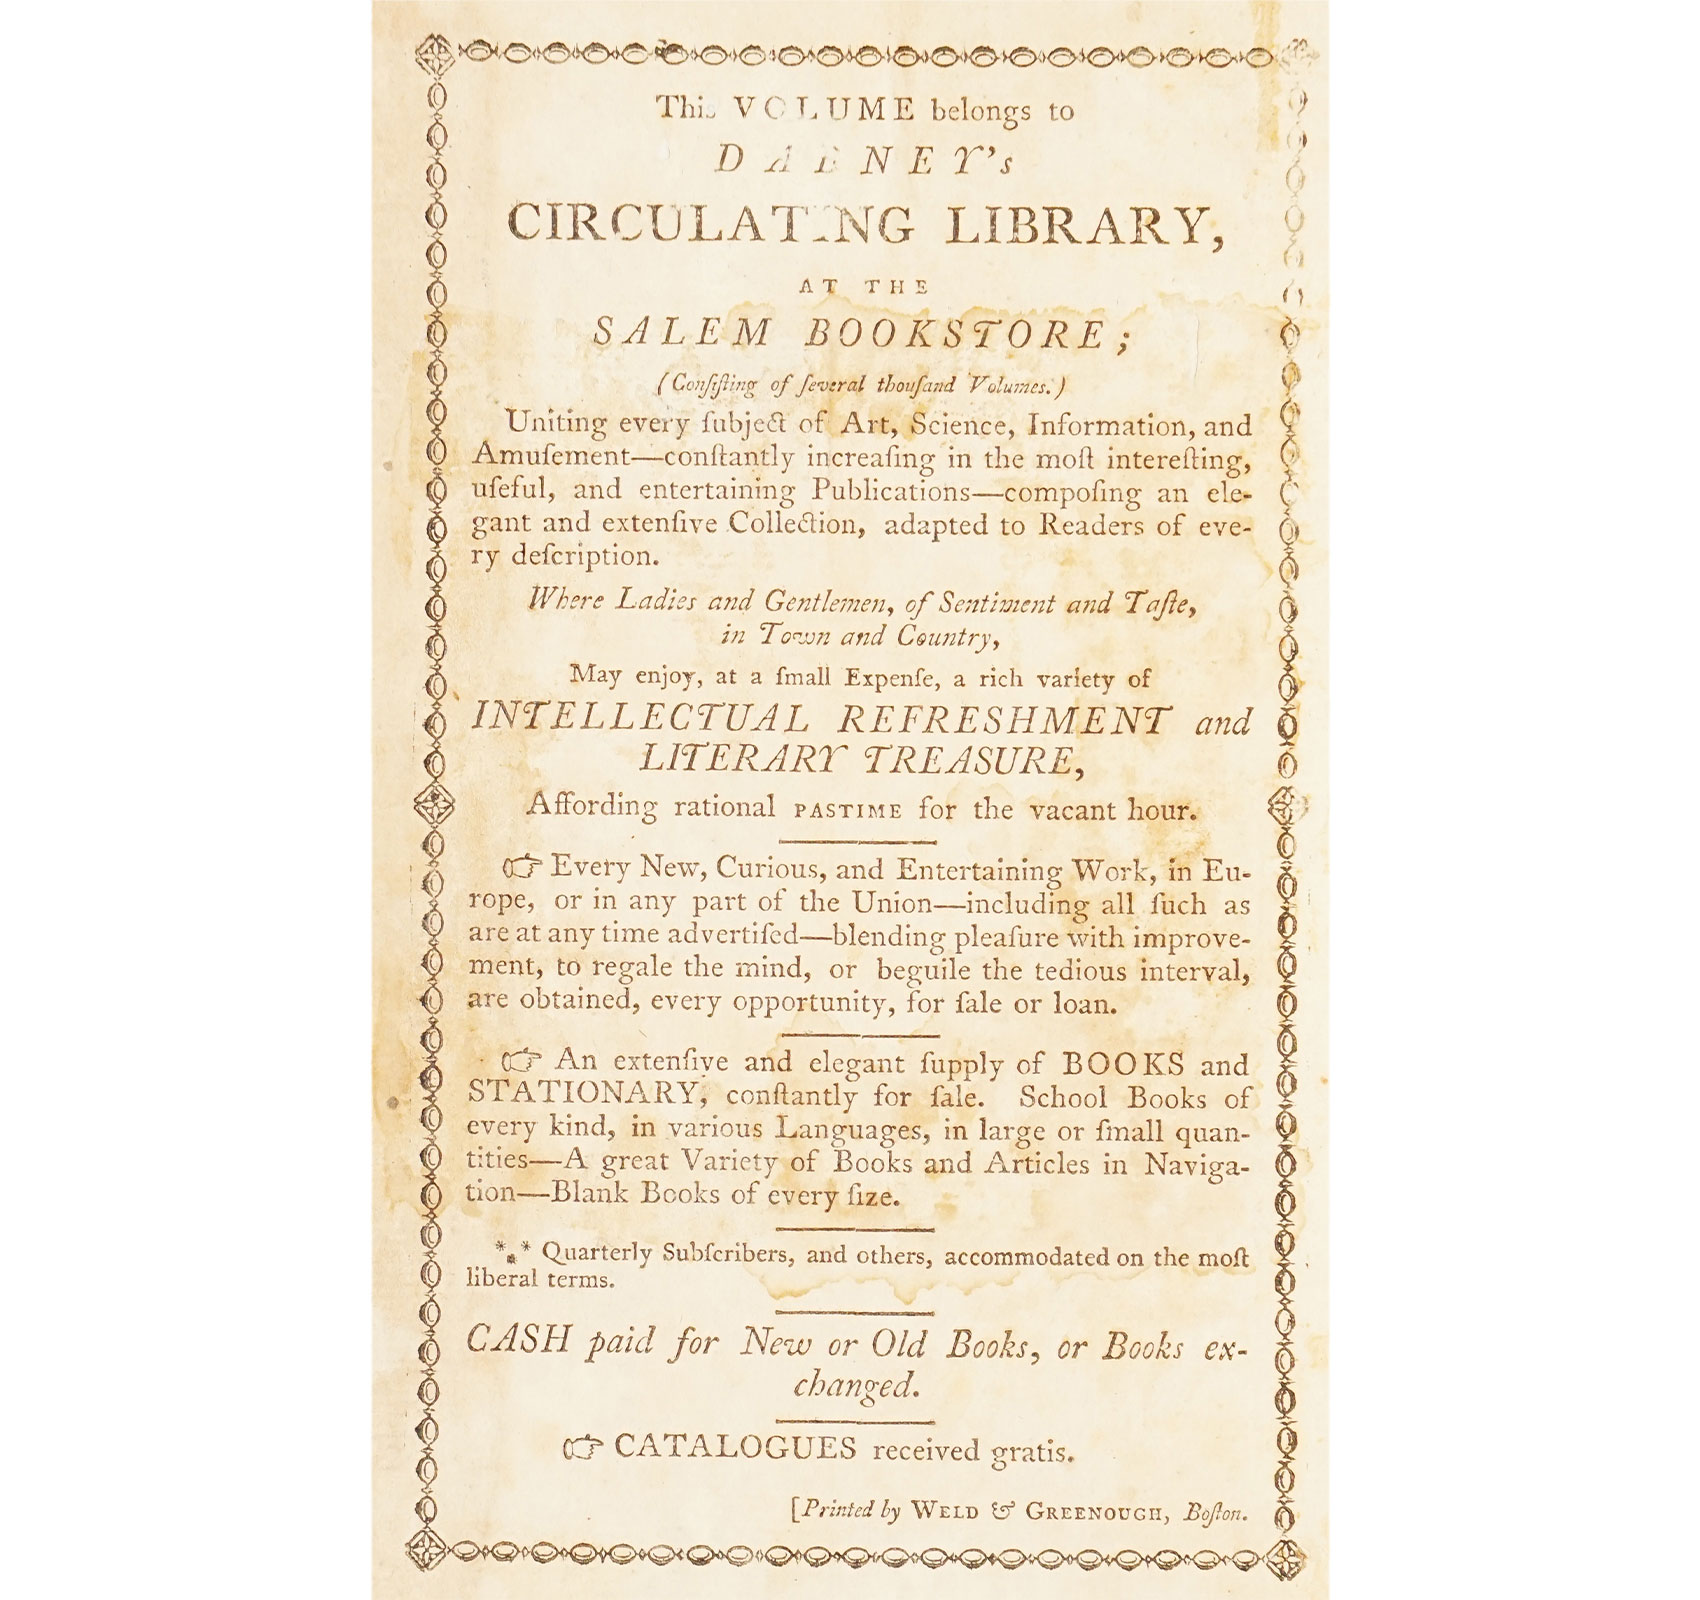 This VOLUME belongs to
DABNEY's
CIRCULATING LIBRARY,
AT THE
SALEM BOOKSTORE;
(Conſiſting of ſeveral thouſand Volumes.)
Uniting every ſubject of Art, Science, Information, and
Amuſement—conſtantly increaſing in the moſt intereſting,
uſeful, and entertaining Publications—compoſing an ele-
gant and extenſive Collection, adapted to Readers of eve-
ry deſcription.
Where Ladies and Gentlemen, of Sentiment and Taſte,
in Town and Country,
May enjoy, at a ſmall Expenſe, a rich variety of
INTELLECTUAL REFRESHMENT and
LITERARY TREASURE,
Affording rational PASTIME for the vacant hour.
☞ Every New, Curious, and Entertaining Work, in Eu-
rope, or in any part of the Union—including all ſuch as
are at any time advertiſed—blending pleaſure with improve-
ment, to regale the mind, or beguile the tedious interval,
are obtained, every opportunity, for ſale or loan.
☞ An extenſive and elegant ſupply of BOOKS and
STATIONARY, conſtantly for ſale. School Books of
every kind, in various Languages, in large or ſmall quan-
tities—A great Variety of Books and Articles in Naviga-
tion—Blank Books of every ſize.
*⁎* Quarterly Subſcribers, and others, accommodated on the moſt
liberal terms.
CASH paid for New or Old Books, or Books ex-
changed.
☞ CATALOGUES received gratis.
[Printed by WELD & GREENOUGH, Boſton.